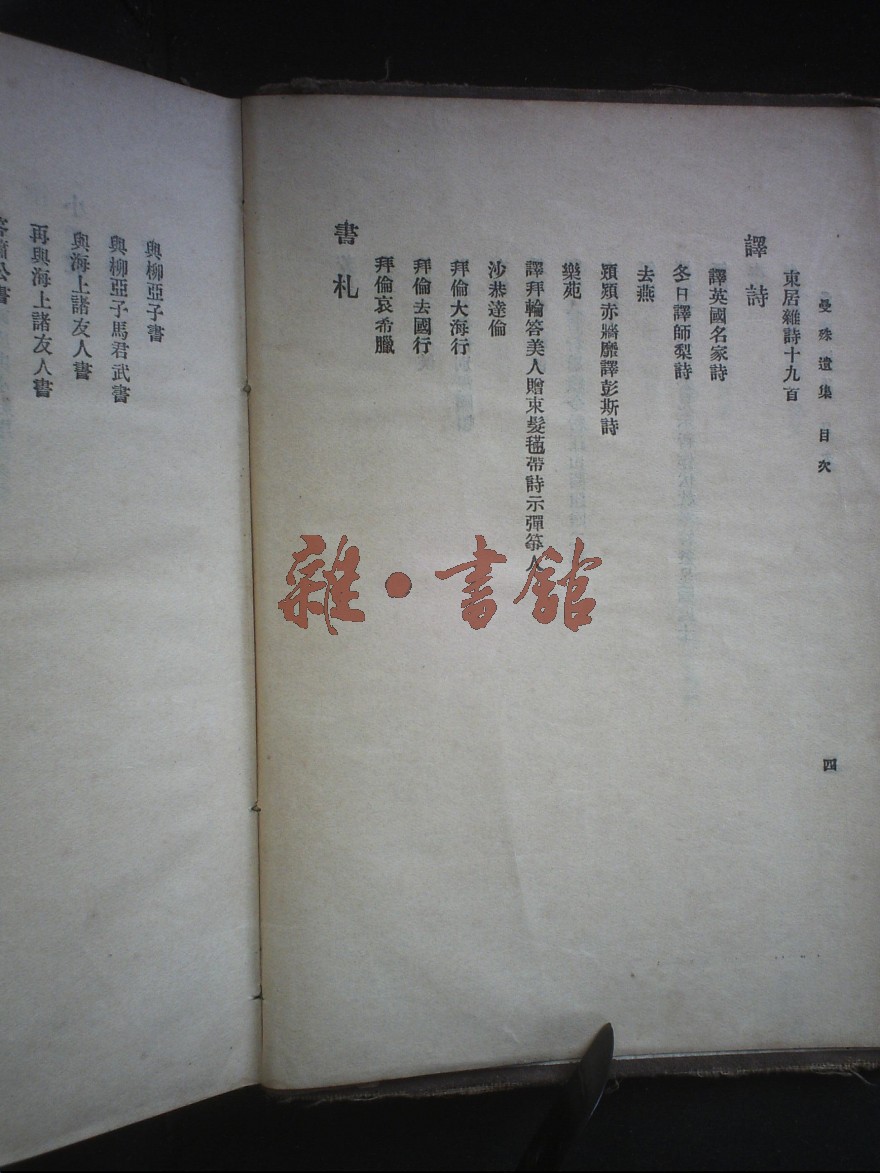 曼殊遺集 目次
四
東居雜詩十九百
譯詩
譯英國名家詩
冬日譯師梨詩
去燕
熲熲赤牆靡譯彭斯詩
樂苑
譯拜輪答美人贈束髮毢帶詩示彈箏人
沙恭達倫
拜倫大海行
拜倫去國行
拜倫哀希臘
書札
與柳亞子書
與柳亞子馬君武書
與海上諸友人書
再與海上諸友人書
公書
雜·書館